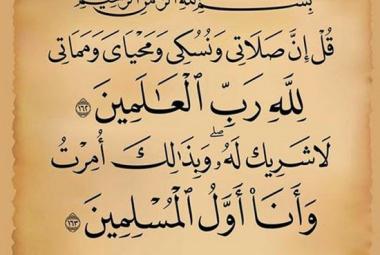 بِسْمِ ٱللَّهِ ٱلرَّحْمَٰنِ ٱلرَّحِيمِ
قُلْ إِنَّ صَلَاتِى وَنُسُكِى وَمَحْيَاىَ وَمَمَاتِى
لِلَّهِ رَبِّ ٱلْعَٰلَمِينَ ١٦٢
لَا شَرِيكَ لَهُۥ ۖ وَبِذَٰلِكَ أُمِرْتُ
وَأَنَا۠ أَوَّلُ ٱلْمُسْلِمِينَ ١٦٣